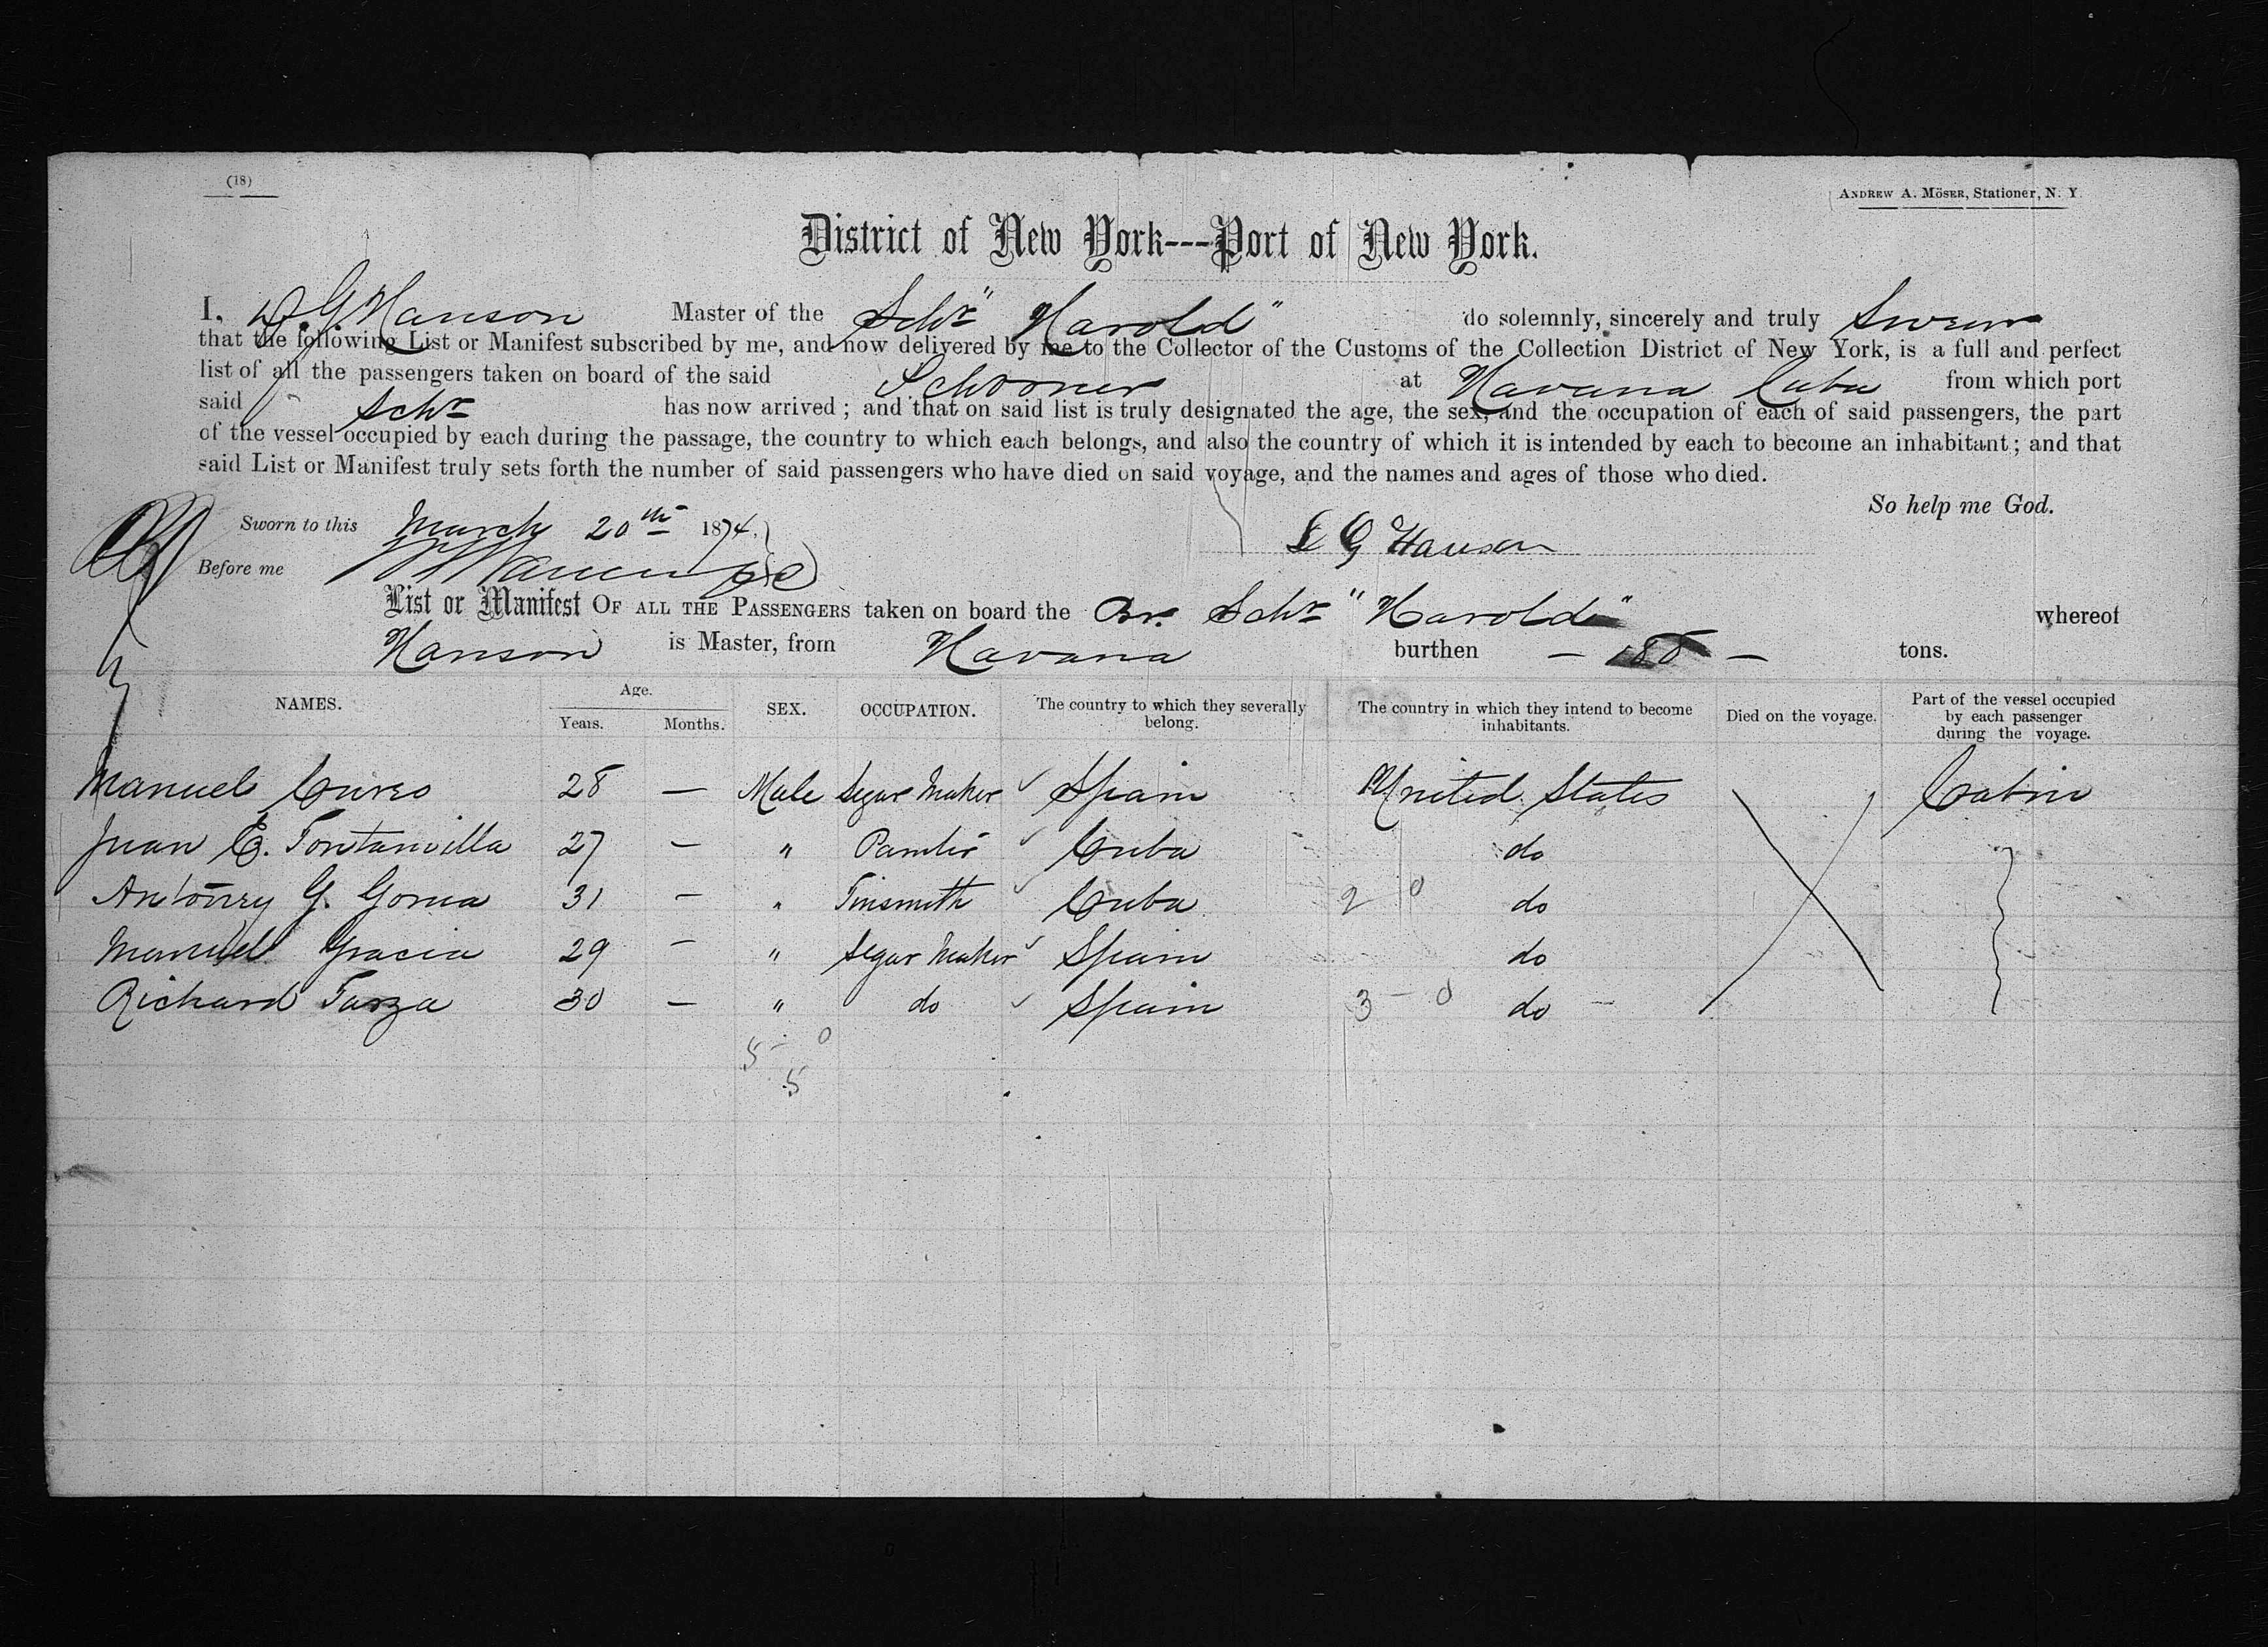 (18)
ANDREW A. MÖSER, Stationer, N. Y.
District of New York---Port of New York.
I, Hanson Master of the Schr "Harold" do solemnly, sincerely and truly Swear
that the following List or Manifest subscribed by me, and now delivered by me to the Collector of the Customs of the Collection District of New York, is a full and perfect
list of all the passengers taken on board of the said Schooner at Havana Cuba from which port
said Schr has now arrived; and that on said list is truly designated the age, the sex, and the occupation of each of said passengers, the part
of the vessel occupied by each during the passage, the country to which each belongs, and also the country of which it is intended by each to become an inhabitant; and that
said List or Manifest truly sets forth the number of said passengers who have died on said voyage, and the names and ages of those who died.
So help me God.
Sworn to this March 20th 1874.
G Hanson
Before me
List or Manifest OF ALL THE PASSENGERS taken on board the Br. Schr "Harold" whereof
Hanson is Master, from Havana burthen — — tons.
NAMES. Age. Years. Months. SEX. OCCUPATION. The country to which they severally belong. The country in which they intend to become inhabitants. Died on the voyage. Part of the vessel occupied by each passenger during the voyage.
Manuel 28 — Male Segar Maker Spain United States Cabin
Juan C. Fontanvilla 27 — " Cuba do
G. 31 — " Tinsmith Cuba 2 0 do
Manuel Gracia 29 — " Segar Maker Spain do
Richard Tarza 30 — " do Spain 3 - 0 do -
5 - 0
5